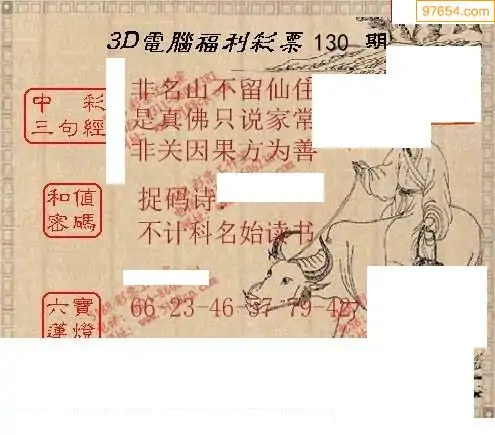 97654.com
3D電腦福利彩票 130 期
中彩
三句經
非名山不留仙住
是真佛只说家常
非关因果方为善
和值
密碼
捉码诗
不计科名始读书
六寶
蓮燈
66-23-46-57-79-42